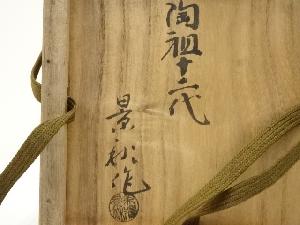 陶祖十二代
景秋作